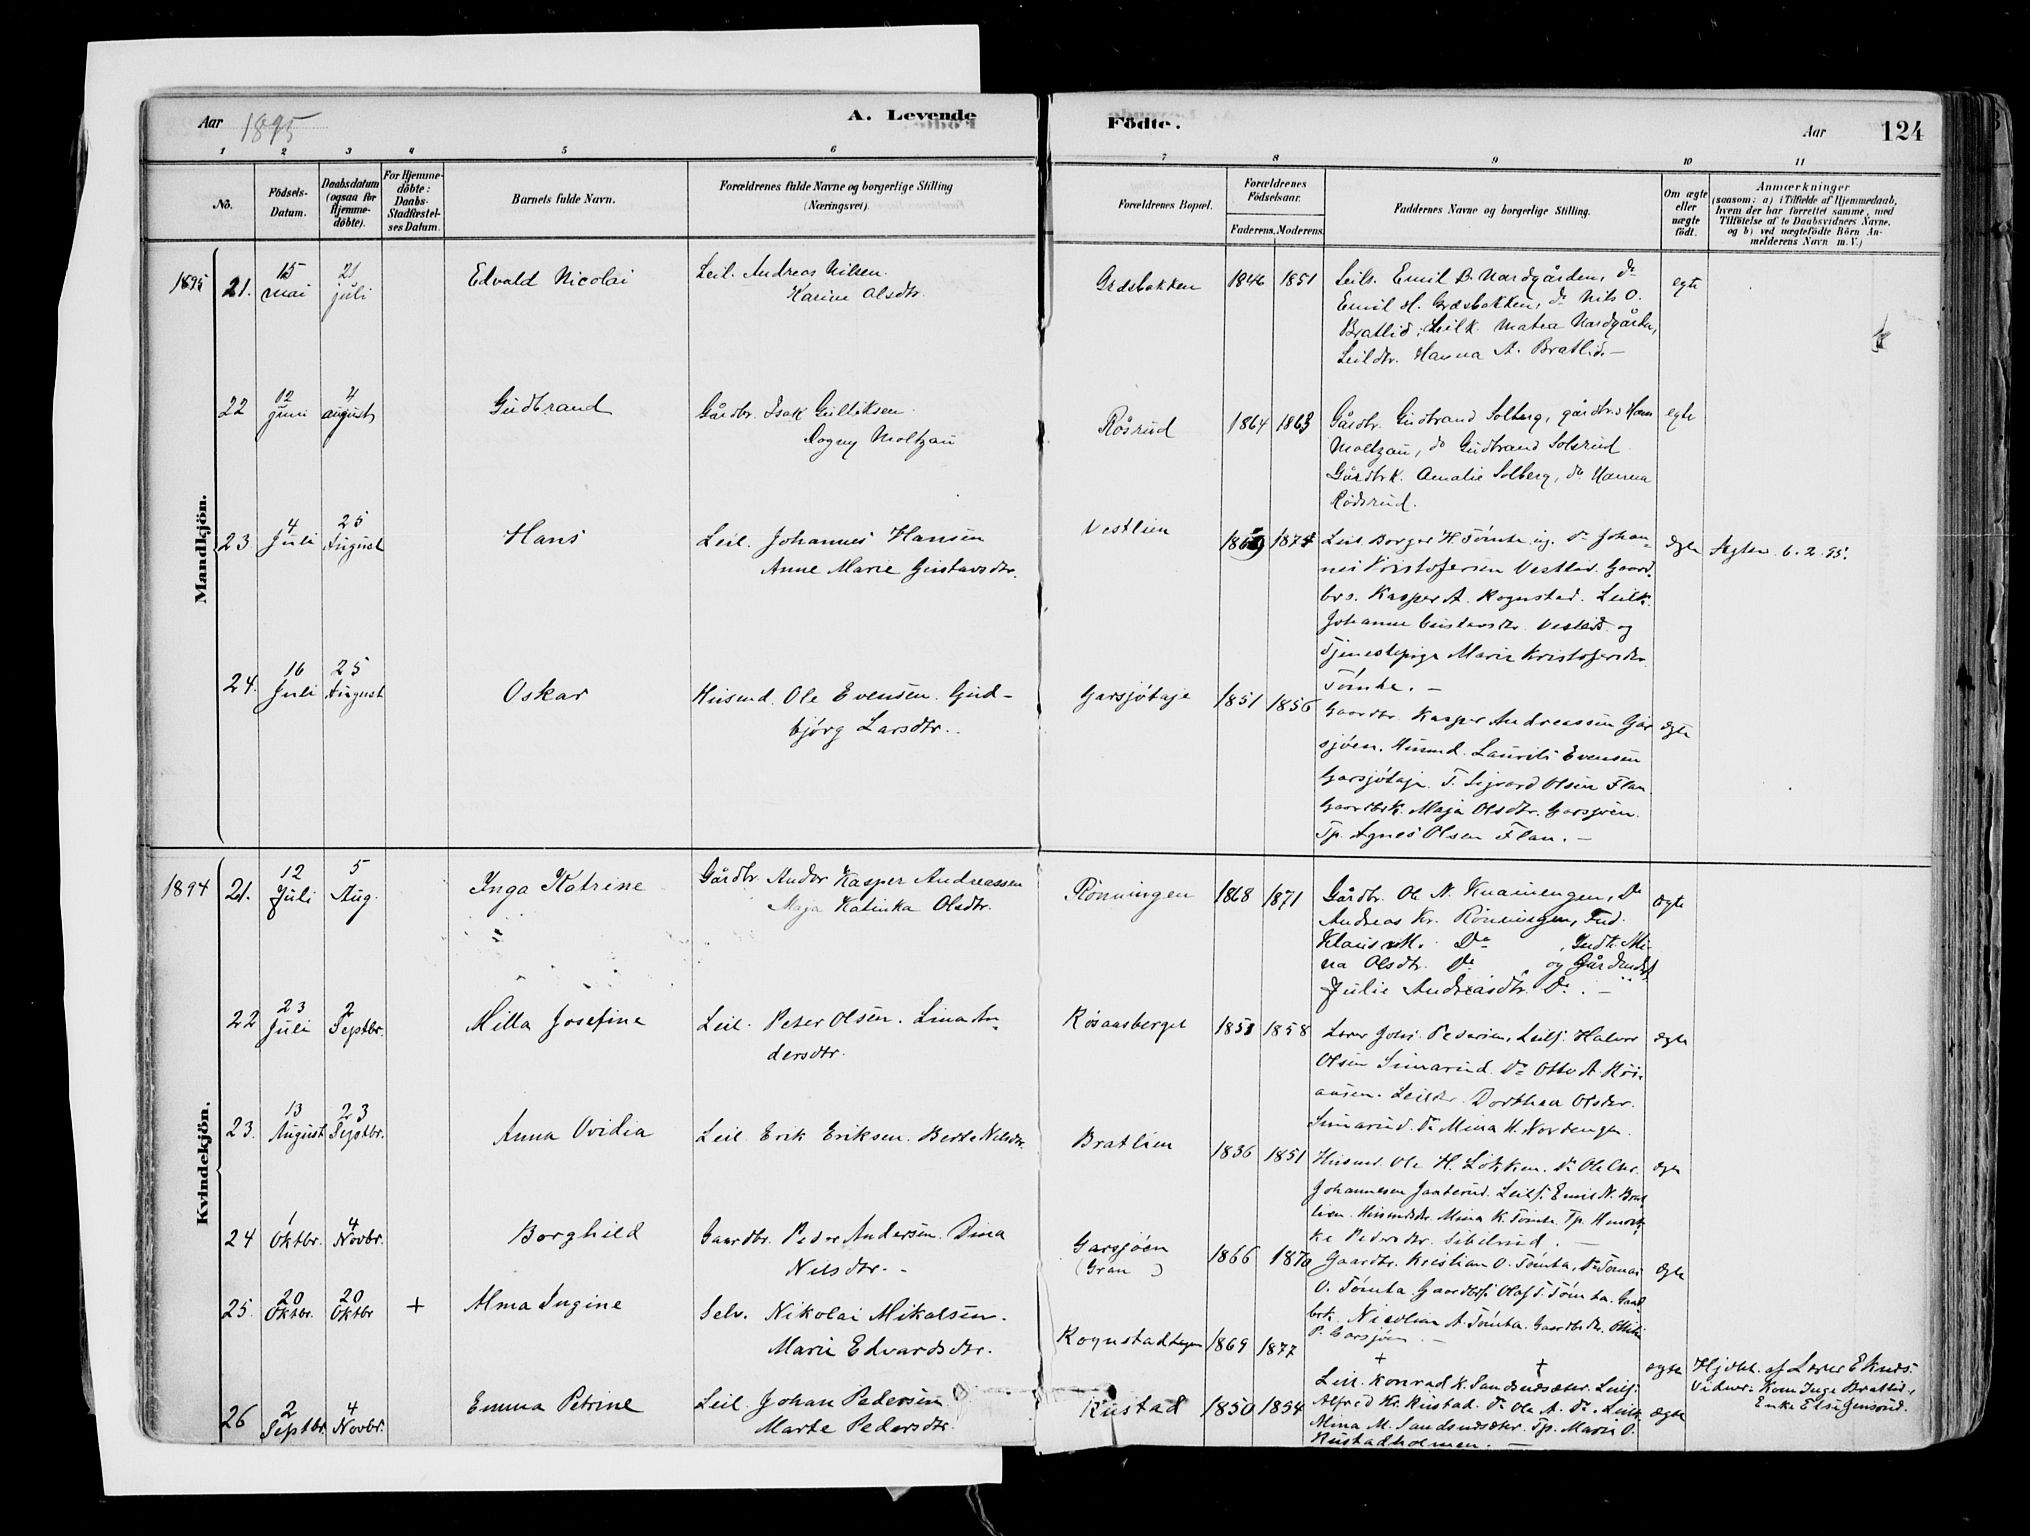 Aar 1895
A. Levende
Födte.
Aar
124
1 2 3 4 5 6 7 8 9 10 11
No.
Födsels-Datum.
Daabsdatum (ogsaa for Hjemme-döbte).
For Hjemme-döbte: Daabs-Stadfæstel-ses Datum.
Barnets fulde Navn.
Forældrenes fulde Navne og borgerlige Stilling
(Næringsvei).
Forældrenes Bopæl.
Forældrenes Födselsaar.
Faderens. Moderens.
Faddernes Navne og borgerlige Stilling.
Om ægte eller uægte födt.
Anmærkninger
(saasom: a) i Tilfælde af Hjemmedaab,
hvem der har forrettet samme, med
Tilföielse af to Daabsvidners Navne,
og b) ved uægtefödte Börn An-
melderens Navn m. V.)
Mandkjön.
1895 21. 15 mai 21 juli Edvald Nicolai
Leil. Andreas Nilsen.
Karine Olsdtr.
Græsbakken 1846 1851
Leils. Emil B. Nordgården, do
Emil H. Græsbakken, do Nils O.
Bratlid, Leilk. Matea Nordgården,
Leildtr. Hanna A. Bratlid. —
egte
22 12 juni 4 august Gudbrand
Gårdbr. Isak Gulliksen.
Dogny Moltzau
Røsrud 1864 1863
Gårdbr. Gudbrand Solberg, gårdbr.s Hans
Moltzau, do Gudbrand Solsrud
Gårdbrk. Amalie Solberg, do Hanna
Rødsrud.
egte
23 4 Juli 25 August Hans
Leil. Johannes Hansen
Anne Marie Gustavsdtr.
Vestlien 1869 1874
Leil Borger H. Tømte ug. do Johan-
nes Kristofersen Vestlid. Gaard-
brs. Kasper A. Rognstad. Leilk.
Johanne Gustavsdtr. Vestlid og
Tjenestepige Marie Kristofersdtr.
Tømte. —
ægte
6.2.95.
24. 16 Juli 25 August Oskar
Husmd. Ole Evensen. Gud-
bjørg Larsdtr.
Garsjøtajet 1851 1856
Gaardbr. Kasper Andreassen Gar
sjøen. Husmd. Laurits Evensen
Garsjøtajet. T. Sigvard Olsen Flan
Gaardbrk. Maja Olsdtr. Garsjøen.
Tp. Agnes Olsen Flan. —
ægte
Kvindekjön.
1894 21. 12 Juli 5 Aug. Inga Katrine
Gårdbr. Kasper Andreassen
Maja Katinka Olsdtr.
Rönningen 1868 1871
Gårdbr. Ole N. Do
Andreas Kr. Rönningen, Ind.
Klaus M. Do , Indk. Mi-
na Olsdtr. Do og
Julie Andreasdtr. Do. —
ægte
22 23 Juli 2 Septbr. Milla Josefine
Leil. Peder Olsen. Lina An-
dersdtr.
Røsaasberget 1853 1858
Lærer Johs. Pedersen, Leilf. Halvor
Olsen Simarud. Do Otto A. Røs-
aasen. Leildtr. Dorthea Olsdtr.
Simarud. Do Mina H. Nordengen.
ægte
23. 13 August 23 Septbr. Anna Ovidia
Leil. Erik Eriksen. Berte Nilsdtr.
Bratlien 1836 1851
Husmd. Ole H. Løkken. Do Ole Chr.
Johannesen Jaaterud. Leilf. Emil N. Brat
lien. Husmdstr. Mina K. Tømte. Tp. Henrik-
ke Pedersdtr. Sibilrud. —
ægte
24 1 Oktbr. 4 Novbr. Borghild
Gaardbr. Peder Andersen. Dina
Nilsdtr. -
Garsjøen
(Gran) 1866 1870
Gaardbr. Kristian O. Tømta, Do Tomas
O. Tømta. Gaardbrs. Olaf T. Tømta. Gaard
brk. Nicoline A. Tømta. Gaardbrdtr. Othilie
P. Garsjøen —
ægte
25. 20 Oktbr. 20 Oktbr + Alma Ingine
Selv. Nikolai Mikalsen.
Marie Edvardsdtr.
Rognstadhagen 1869 1877
+ +
ægte
Hjdbt. af Lærer E. Knds-
Vidner: Kone Inge Bratlid,
Enke Else Jensrud.
26 2 Septbr. 4 Novbr. Emma Petrine
Leil. Johan Pedersen
Marte Pedersdtr.
Rustad 1850 1854
Leil. Konrad K. Sandsndsæter. Leilf.
Alfred Kr. Rustad. Do Ole A. Do. Leilk
Mina M. Sandsndsæter. Tp. Marie O.
Rustadholmen. —
ægte